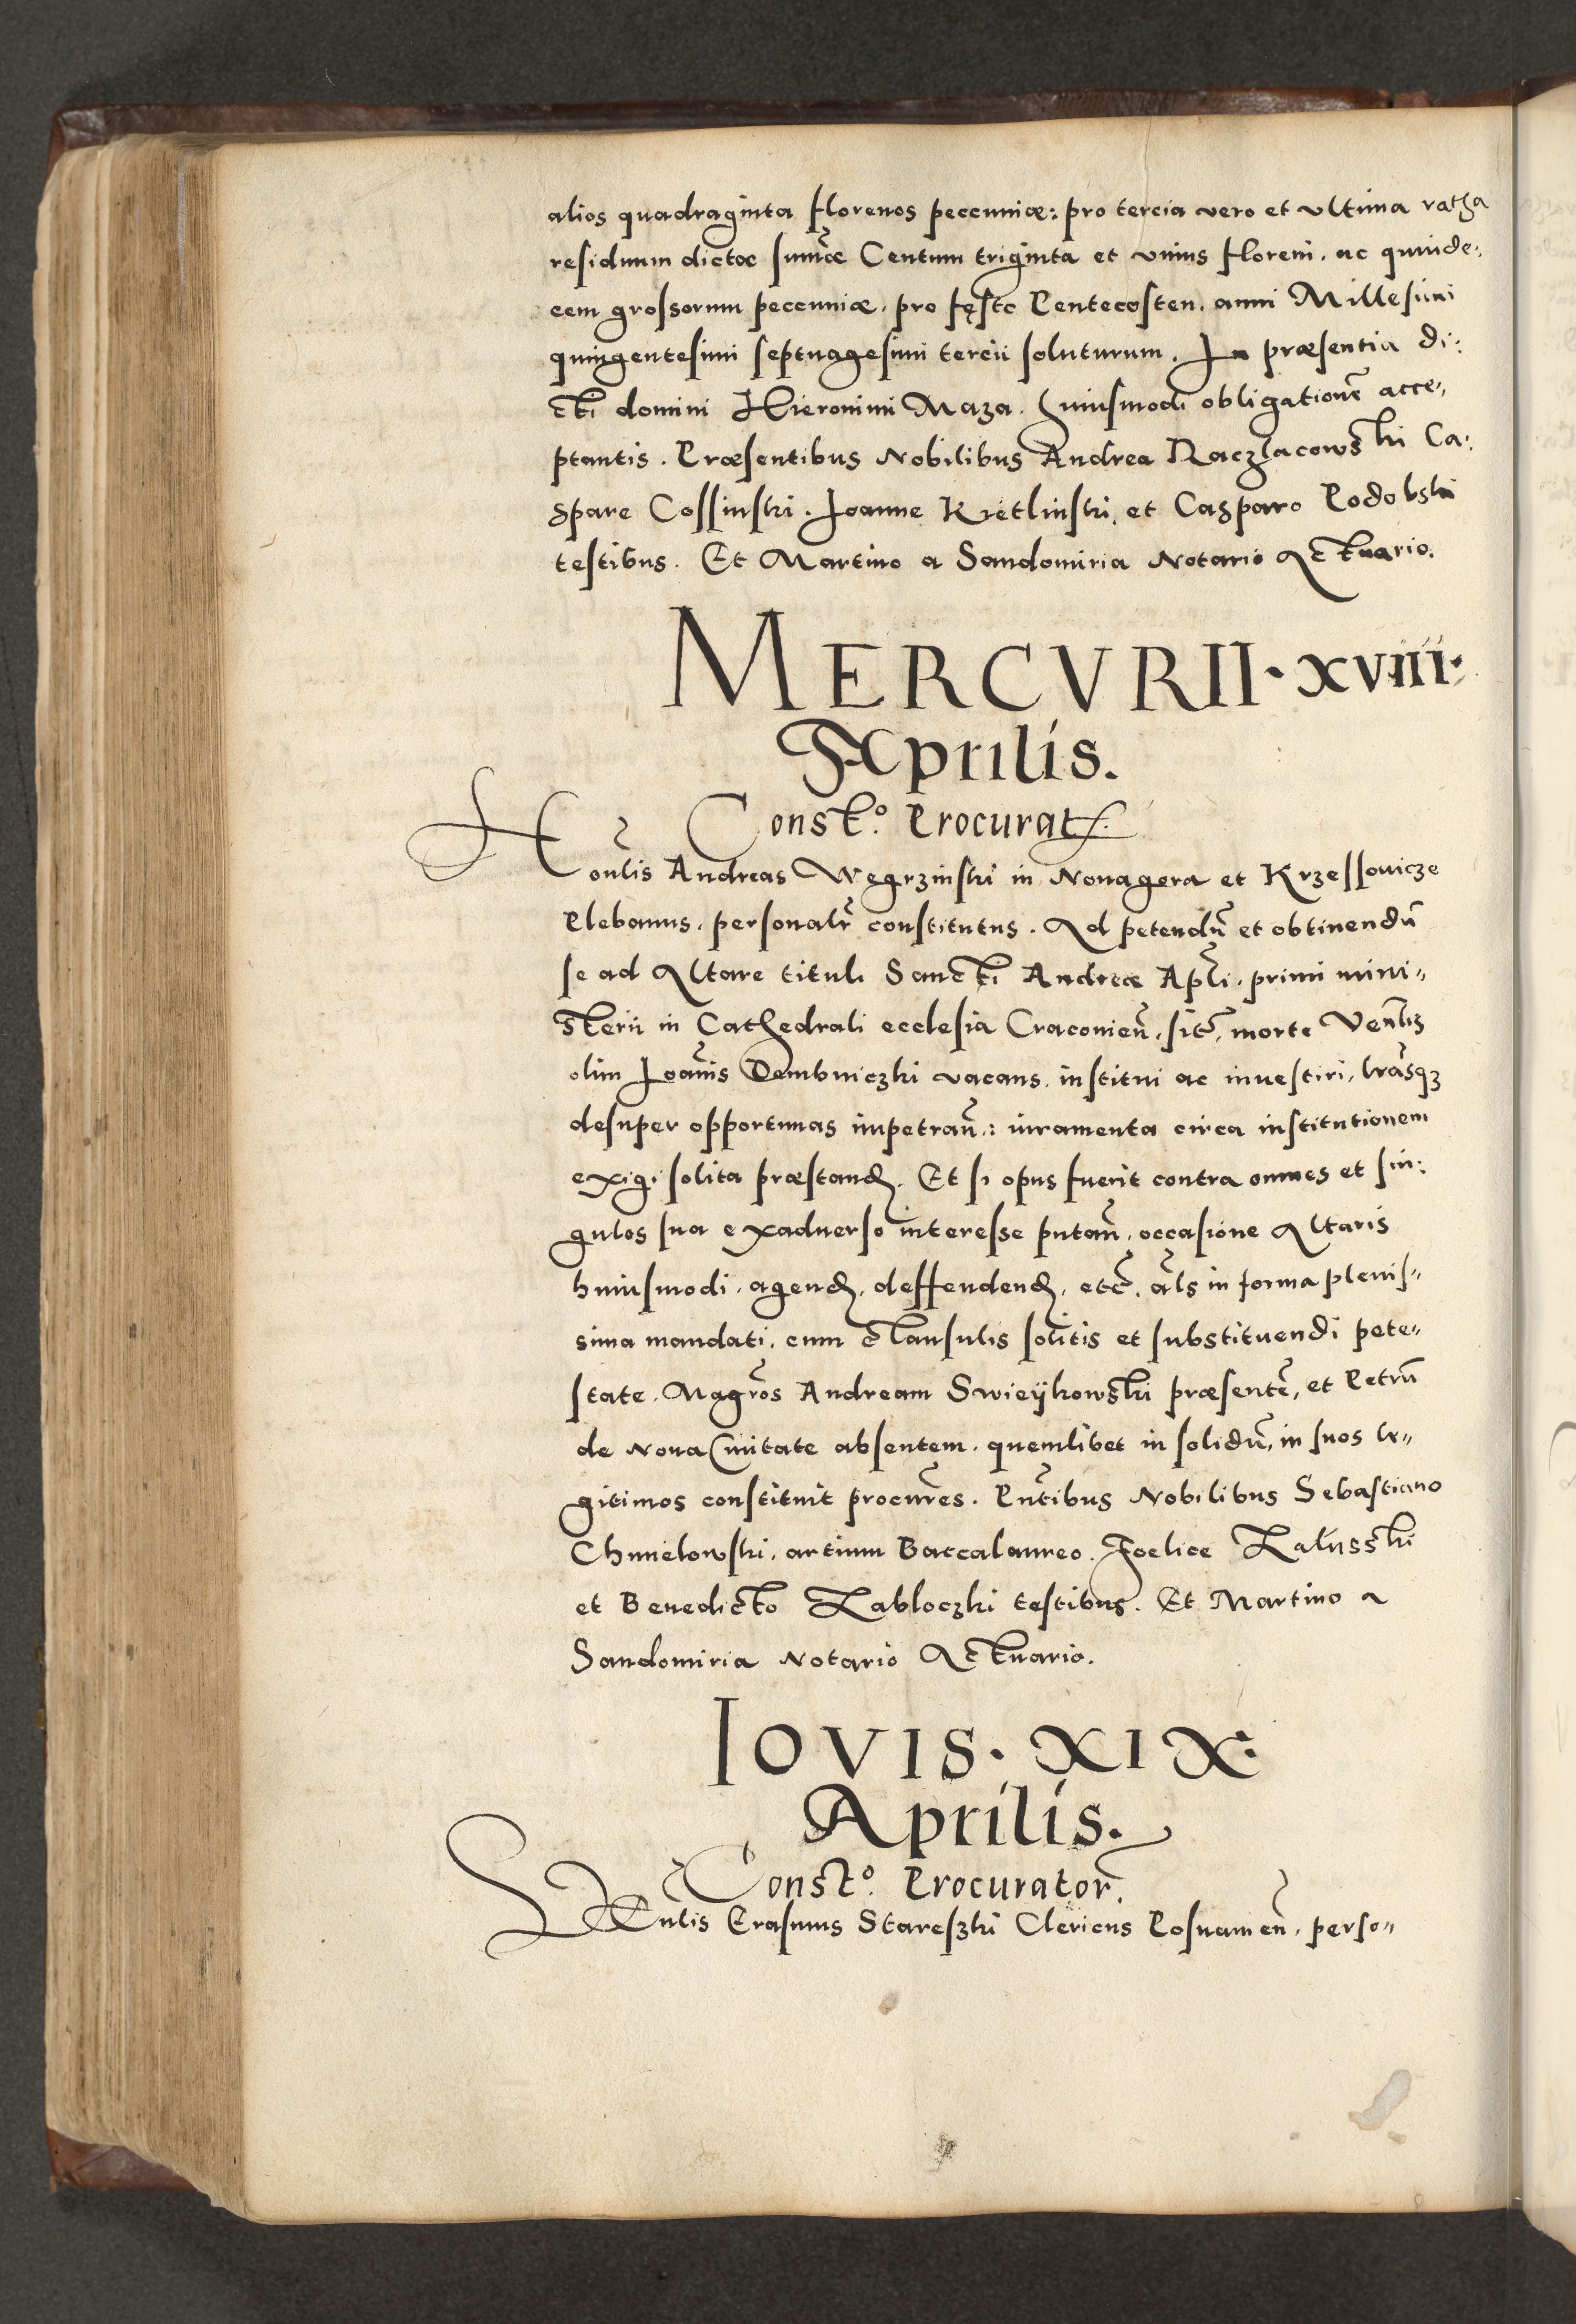 alios quadraginta florenos pecuniæ: pro tercia vero et vltima ratha
residuum dictæ sum̃æ Centum triginta et vnius floreni, ac quinde:
cem grossorum pecuniæ, pro fęsto Pentecosten, anni Millesimi
quingentesimi septuagesimi tercii soluturum. In præsentia di:
cti domini Hieronimi Maza, huiusmodi obligationẽ acce„
ptantis. Præsentibus Nobilibus Andrea Raczlacowski Ca:
spare Cossinski, Joanne Kretlinski, et Casparo Rodobski
testibus. Et Martino a Sandomiria Notario Actuario.
MERCVRII · XVIII ·
Aprilis.
Const.º Procurat.
Honl̃is Andreas Wegrzinski in Nonagora et Krzessouicze
Plebanus, personalr̃ constitutus. Ad petendũ et obtinendũ
se ad Altare tituli Sancti Andreæ Apl̃i, primi mini„
sterii in Cathedrali ecclesia Cracouien̄, sit̃, morte Ven̄lis
olim Joan̄is Dembniczki vacans, institui ac inuestiri, lr̃asqꝫ
desuper opportunas impetran̄: iuramenta circa institutionem
exigi solita præstand. Et si opus fuerit contra omnes et sin:
gulos sua exaduerso interesse putan̄, occasione Altaris
huiusmodi, agend, deffendend, etc̃. al̃s in forma plenis„
sima mandati, cum clausulis solitis et substituendi pote„
state, Magr̃os Andream Swieykowski præsentẽ, et Petrũ
de Noua Ciuitate absentem, quemlibet in solidũ, in suos le„
gitimos constituit procur̃es. Pñtibus Nobilibus Sebastiano
Chmielowski, artium Baccalaureo, Foelice Zalusski
et Benedicto Zabloczki testibus. Et Martino a
Sandomiria Notario Actuario.
IOVIS · XIX ·
Aprilis.
Const.º Procurator.
Venl̃is Erasmus Stareszki Clericus Posnanien̄, perso„